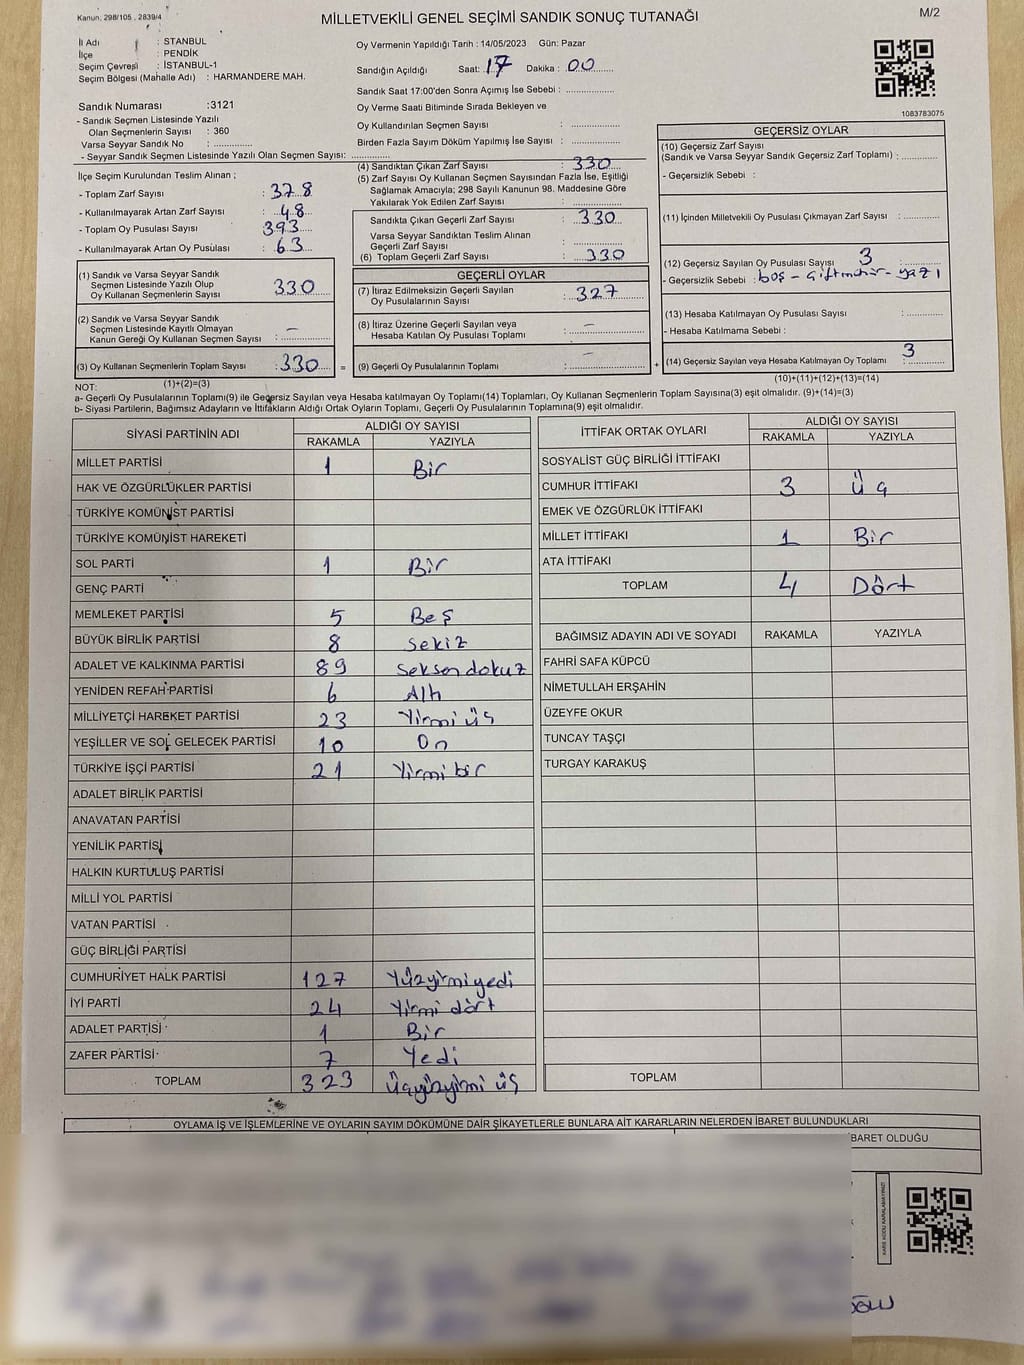 Kanun: 298/105 , 2839/4
MİLLETVEKİLİ GENEL SEÇİMİ SANDIK SONUÇ TUTANAĞI
M/2
İl Adı : STANBUL
İlçe : PENDİK
Seçim Çevresi : İSTANBUL-1
Seçim Bölgesi (Mahalle Adı) : HARMANDERE MAH.
Sandık Numarası :3121
- Sandık Seçmen Listesinde Yazılı
Olan Seçmenlerin Sayısı : 360
Varsa Seyyar Sandık No : ..............
- Seyyar Sandık Seçmen Listesinde Yazılı Olan Seçmen Sayısı: ..............
Oy Vermenin Yapıldığı Tarih : 14/05/2023 Gün: Pazar
Sandığın Açıldığı Saat: 17 Dakika : 00
Sandık Saat 17:00'den Sonra Açımış İse Sebebi : ..............
Oy Verme Saati Bitiminde Sırada Bekleyen ve
Oy Kullandırılan Seçmen Sayısı : ..............
Birden Fazla Sayım Döküm Yapılmış İse Sayısı : ..............
1083783075
İlçe Seçim Kurulundan Teslim Alınan ;
- Toplam Zarf Sayısı : 378
- Kullanılmayarak Artan Zarf Sayısı : 48
- Toplam Oy Pusulası Sayısı : 393
- Kullanılmayarak Artan Oy Pusulası : 63
(1) Sandık ve Varsa Seyyar Sandık
Seçmen Listesinde Yazılı Olup
Oy Kullanan Seçmenlerin Sayısı 330
(2) Sandık ve Varsa Seyyar Sandık
Seçmen Listesinde Kayıtlı Olmayan
Kanun Gereği Oy Kullanan Seçmen Sayısı : –
(3) Oy Kullanan Seçmenlerin Toplam Sayısı : 330 =
(1)+(2)=(3)
(4) Sandıktan Çıkan Zarf Sayısı : 330
(5) Zarf Sayısı Oy Kullanan Seçmen Sayısından Fazla İse, Eşitliği
Sağlamak Amacıyla; 298 Sayılı Kanunun 98. Maddesine Göre
Yakılarak Yok Edilen Zarf Sayısı : ..............
Sandıkta Çıkan Geçerli Zarf Sayısı : 330
Varsa Seyyar Sandıktan Teslim Alınan
Geçerli Zarf Sayısı : ..............
(6) Toplam Geçerli Zarf Sayısı : 330
GEÇERLİ OYLAR
(7) İtiraz Edilmeksizin Geçerli Sayılan
Oy Pusulalarının Sayısı : 327
(8) İtiraz Üzerine Geçerli Sayılan veya
Hesaba Katılan Oy Pusulası Toplamı : –
(9) Geçerli Oy Pusulalarının Toplamı : – +
GEÇERSİZ OYLAR
(10) Geçersiz Zarf Sayısı
(Sandık ve Varsa Seyyar Sandık Geçersiz Zarf Toplamı) : ..............
- Geçersizlik Sebebi :
(11) İçinden Milletvekili Oy Pusulası Çıkmayan Zarf Sayısı : ..............
(12) Geçersiz Sayılan Oy Pusulası Sayısı 3
- Geçersizlik Sebebi : boş - çiftmühür - yazı
(13) Hesaba Katılmayan Oy Pusulası Sayısı : ..............
- Hesaba Katılmama Sebebi :
(14) Geçersiz Sayılan veya Hesaba Katılmayan Oy Toplamı : 3
(10)+(11)+(12)+(13)=(14)
NOT:
a- Geçerli Oy Pusulalarının Toplamı(9) ile Geçersiz Sayılan veya Hesaba katılmayan Oy Toplamı(14) Toplamları, Oy Kullanan Seçmenlerin Toplam Sayısına(3) eşit olmalıdır. (9)+(14)=(3)
b- Siyasi Partilerin, Bağımsız Adayların ve İttifakların Aldığı Ortak Oyların Toplamı, Geçerli Oy Pusulalarının Toplamına(9) eşit olmalıdır.
SİYASİ PARTİNİN ADI ALDIĞI OY SAYISI
RAKAMLA YAZIYLA
MİLLET PARTİSİ 1 Bir
HAK VE ÖZGÜRLÜKLER PARTİSİ
TÜRKİYE KOMÜNİST PARTİSİ
TÜRKİYE KOMÜNİST HAREKETİ
SOL PARTİ 1 Bir
GENÇ PARTİ
MEMLEKET PARTİSİ 5 Beş
BÜYÜK BİRLİK PARTİSİ 8 Sekiz
ADALET VE KALKINMA PARTİSİ 89 Seksen dokuz
YENİDEN REFAH PARTİSİ 6 Altı
MİLLİYETÇİ HAREKET PARTİSİ 23 Yirmi üç
YEŞİLLER VE SOL GELECEK PARTİSİ 10 On
TÜRKİYE İŞÇİ PARTİSİ 21 Yirmi bir
ADALET BİRLİK PARTİSİ
ANAVATAN PARTİSİ
YENİLİK PARTİSİ
HALKIN KURTULUŞ PARTİSİ
MİLLİ YOL PARTİSİ
VATAN PARTİSİ
GÜÇ BİRLİĞİ PARTİSİ
CUMHURİYET HALK PARTİSİ 127 Yüzyirmiyedi
İYİ PARTİ 24 Yirmi dört
ADALET PARTİSİ 1 Bir
ZAFER PARTİSİ 7 Yedi
TOPLAM 323 Üçyüzyirmi üç
İTTİFAK ORTAK OYLARI ALDIĞI OY SAYISI
RAKAMLA YAZIYLA
SOSYALİST GÜÇ BİRLİĞİ İTTİFAKI
CUMHUR İTTİFAKI 3 Üç
EMEK VE ÖZGÜRLÜK İTTİFAKI
MİLLET İTTİFAKI 1 Bir
ATA İTTİFAKI
TOPLAM 4 Dört
BAĞIMSIZ ADAYIN ADI VE SOYADI RAKAMLA YAZIYLA
FAHRİ SAFA KÜPCÜ
NİMETULLAH ERŞAHİN
ÜZEYFE OKUR
TUNCAY TAŞÇI
TURGAY KARAKUŞ
TOPLAM
OYLAMA İŞ VE İŞLEMLERİNE VE OYLARIN SAYIM DÖKÜMÜNE DAİR ŞİKAYETLERLE BUNLARA AİT KARARLARIN NELERDEN İBARET BULUNDUKLARI
BARET OLDUĞU
KARE KODU KARALAMAYINIZ!